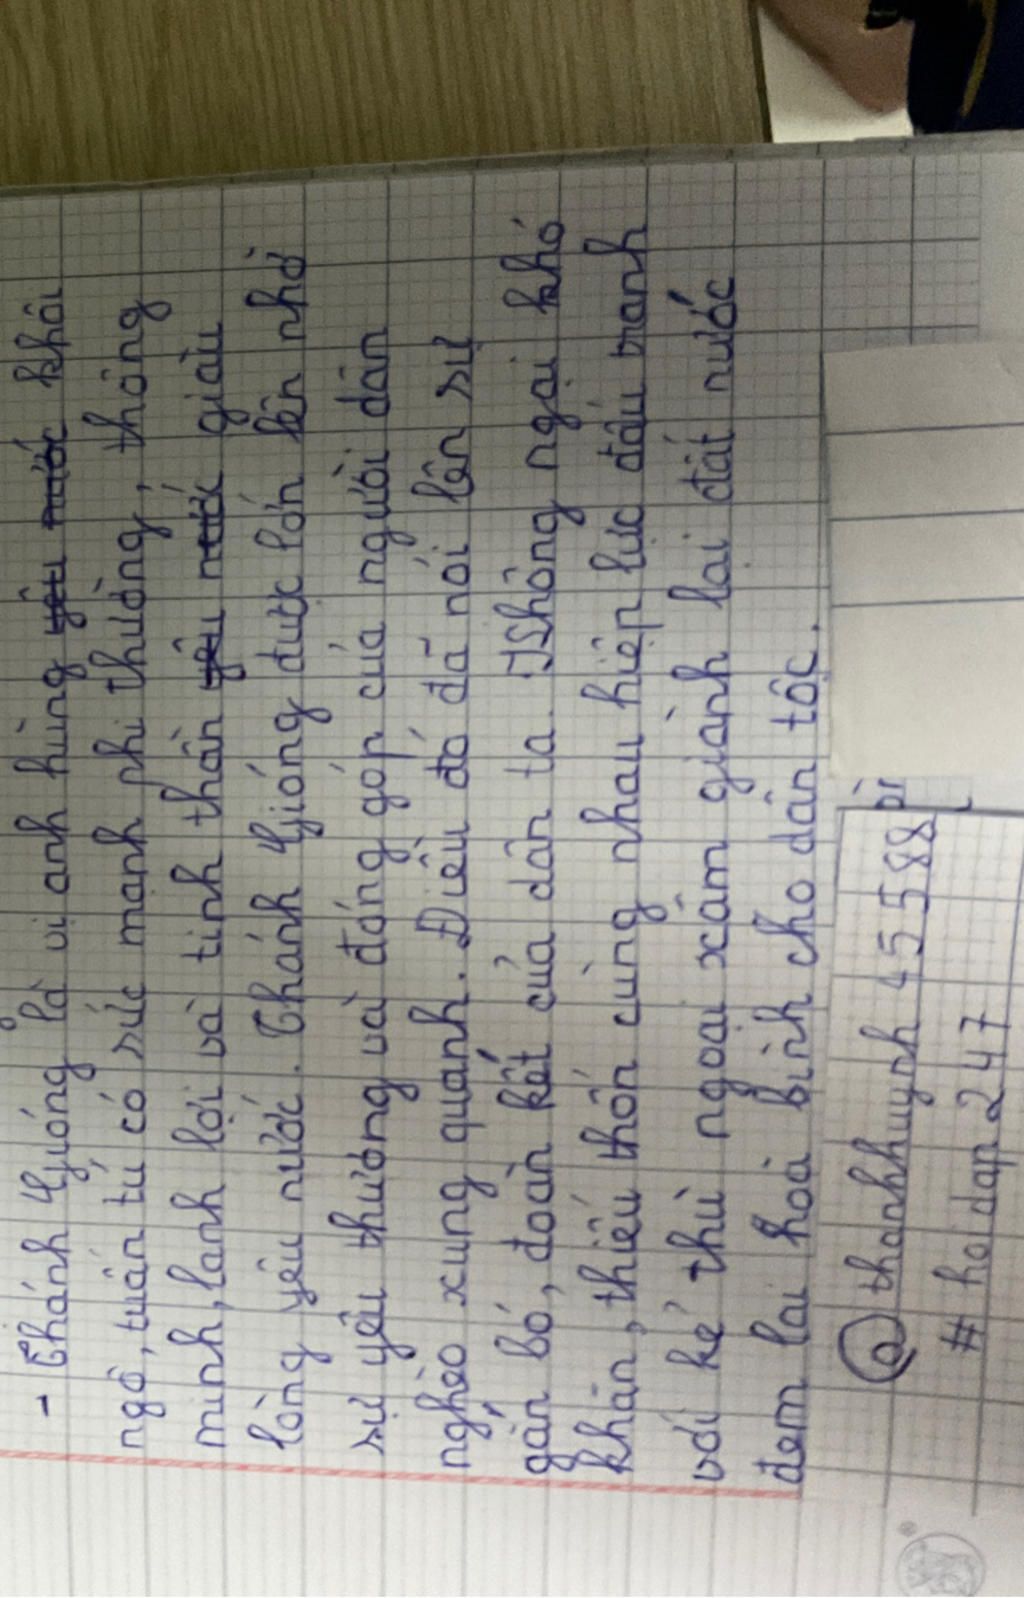 - Thánh Gióng là vị anh hùng yêu nước khôi
ngô, tuấn tú có sức mạnh phi thường, thông
minh, lanh lợi và tinh thần yêu nước giàu
lòng yêu nước. Thánh Gióng được lớn lên nhờ
sự yêu thương và đóng góp của người dân
nghèo xung quanh. Điều đó đã nói lên sự
gắn bó, đoàn kết của dân ta. Không ngại khó
khăn, thiếu thốn cùng nhau hiệp lực đấu tranh
với kẻ thù ngoại xâm giành lại đất nước
đem lại hoà bình cho dân tộc.
@thanhhuynh45588
#hoidap247